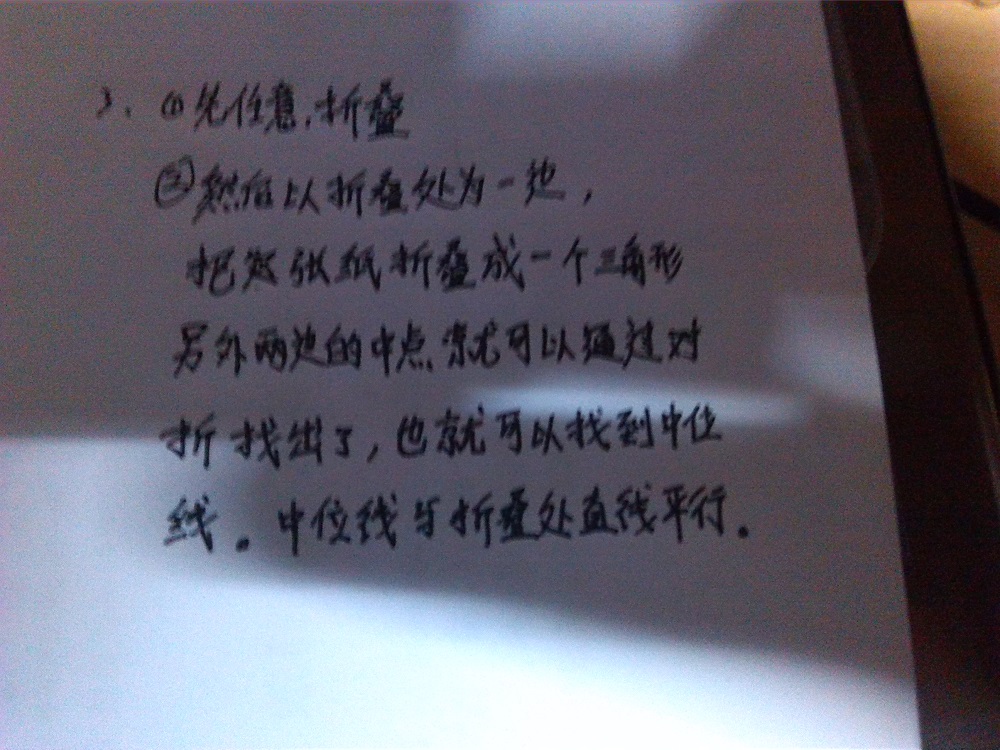 3. ①先任意折叠
②然后以折叠处为一边,
把这张纸折叠成一个三角形
另外两边的中点就可以通过对
折找出了,也就可以找到中位
线。中位线与折叠处直线平行。